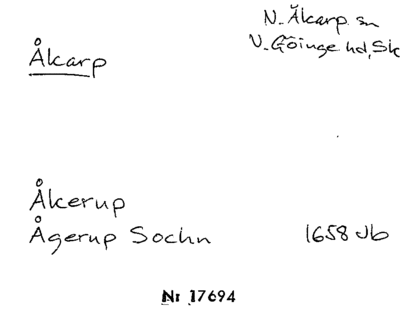 N. Åkarp sn
Åkarp
V. Göinge hd, Sk
Åkerup
Ågerup Sochn 1658 Jb
Nr 17694